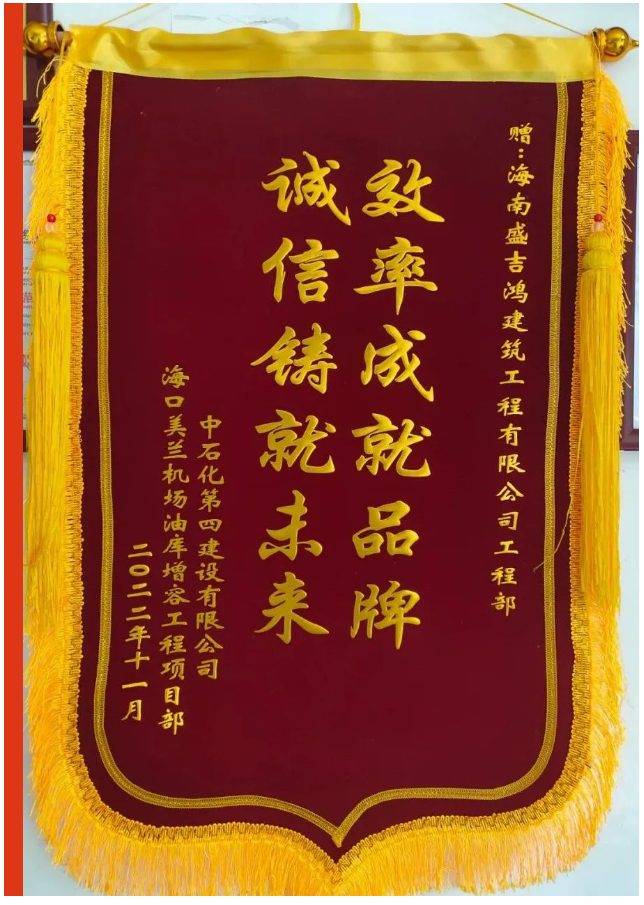 赠：海南盛吉鸿建筑工程有限公司工程部
效率成就品牌
诚信铸就未来
中石化第四建设有限公司
海口美兰机场油库增容工程项目部
二〇二二年十一月